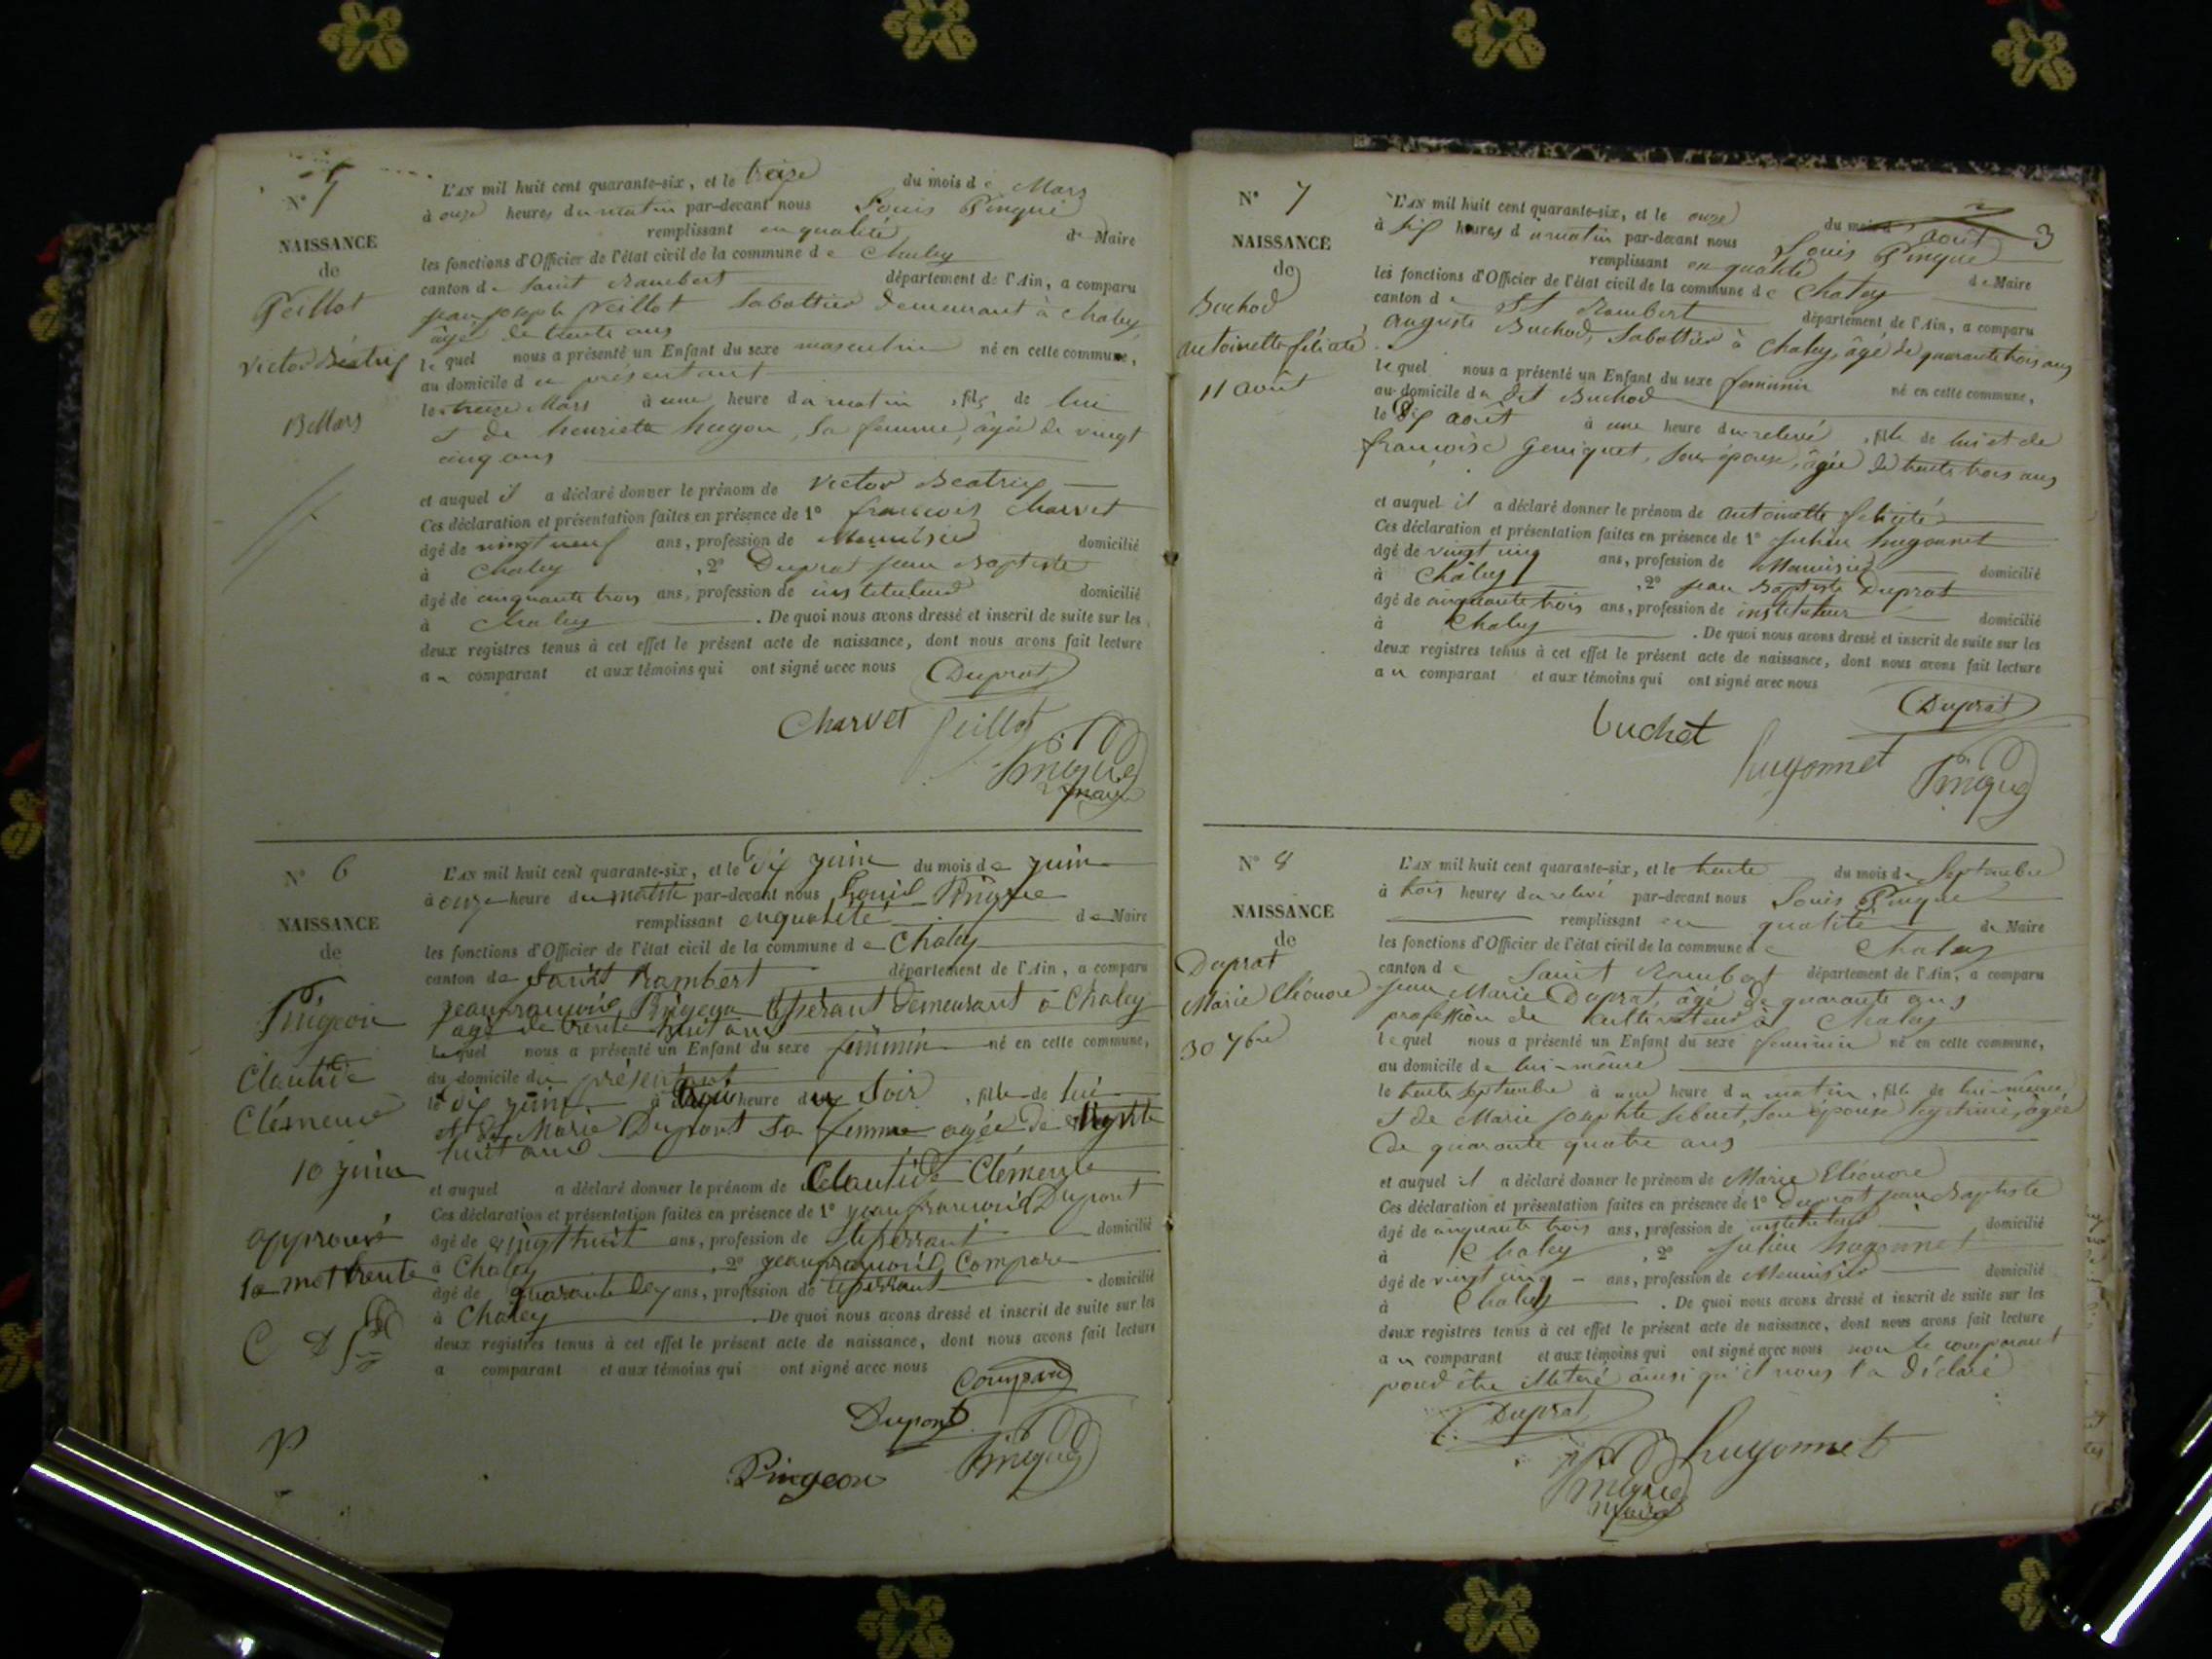 N° 5
NAISSANCE
de
Peillot
Victor Béatrix
13 Mars
L'AN mil huit cent quarante-six, et le treize du mois de Mars
à onze heures du matin par-devant nous Louis Pingue
remplissant en qualité de Maire
les fonctions d'Officier de l'état civil de la commune de Chaley
canton de Saint Rambert département de l'Ain, a comparu
jean joseph Peillot Sabottier demeurant à Chaley
âgé de trente ans
lequel nous a présenté un Enfant du sexe masculin né en cette commune,
au domicile du présentant
le treize Mars à une heure du matin, fils de lui
et de henriette hugon, sa femme, âgée de vingt
cinq ans
et auquel il a déclaré donner le prénom de Victor Beatrix
Ces déclaration et présentation faites en présence de 1° francois Charvet
âgé de vingt neuf ans, profession de Menuisier domicilié
à Chaley, 2° Duprat jean Baptiste
âgé de cinquante trois ans, profession de instituteur domicilié
à Chaley. De quoi nous avons dressé et inscrit de suite sur les
deux registres tenus à cet effet le présent acte de naissance, dont nous avons fait lecture
au comparant et aux témoins qui ont signé avec nous
Duprat
Charvet Peillot
Pingue
maire
N° 6
NAISSANCE
de
Pingeon
Clautide
Clémence
10 juin
approuvé
le mot trente
L'AN mil huit cent quarante-six, et le dix juin du mois de juin
à onze heure du matin par-devant nous Louis Pingue
remplissant enqualité de Maire
les fonctions d'Officier de l'état civil de la commune de Chaley
canton de Saint Rambert département de l'Ain, a comparu
jeanfrancois Pingeon tisserant demeurant à Chaley
age de trente huit ans
lequel nous a présenté un Enfant du sexe féminin né en cette commune,
du domicile du présentant
le dix juin à trois heure du Soir, fille de lui
et de Marie Dupont sa femme agée de trente
huit ans
et auquel a déclaré donner le prénom de Clautide Clémence
Ces déclaration et présentation faites en présence de 1° jean francois Dupont
âgé de vingthuit ans, profession de tisserant domicilié
à Chaley, 2° jeanfrancois Compare
âgé de quarante dex ans, profession de tisserant domicilié
à Chaley. De quoi nous avons dressé et inscrit de suite sur les
deux registres tenus à cet effet le présent acte de naissance, dont nous avons fait lecture
a comparant et aux témoins qui ont signé avec nous
Compare
Dupont
Pingeon Pingue
3
N° 7
NAISSANCE
de
Buchod
antoinette félicité
11 août
L'AN mil huit cent quarante-six, et le onze du mois d août
à six heures du matin par-devant nous Louis Pingue
remplissant en qualité de Maire
les fonctions d'Officier de l'état civil de la commune de Chaley
canton de St Rambert département de l'Ain, a comparu
auguste Buchod, Sabottier à Chaley, âgé de quarante trois ans
lequel nous a présenté un Enfant du sexe feminin né en cette commune,
au domicile du dit Buchod
le dix août à une heure du relevé, fille de lui et de
françoise Geniquet, son épouse, âgée de trente trois ans
et auquel il a déclaré donner le prénom de antoinette félicité
Ces déclaration et présentation faites en présence de 1° Julien hugonnet
âgé de vingt cinq ans, profession de Menuisier domicilié
à Chaley, 2° jean Baptiste Duprat
âgé de cinquante trois ans, profession de instituteur domicilié
à Chaley. De quoi nous avons dressé et inscrit de suite sur les
deux registres tenus à cet effet le présent acte de naissance, dont nous avons fait lecture
au comparant et aux témoins qui ont signé avec nous
Duprat
buchet
hugonnet Pingue
N° 8
NAISSANCE
de
Duprat
Marie Eléonore
30 7bre
L'AN mil huit cent quarante-six, et le trente du mois de Septembre
à trois heures du relevé par-devant nous Louis Pingue
remplissant en qualité de Maire
les fonctions d'Officier de l'état civil de la commune de Chaley
canton de Saint Rambert département de l'Ain, a comparu
jean Marie Duprat, âgé de quarante ans
profession de cultivateur à Chaley
lequel nous a présenté un Enfant du sexe feminin né en cette commune,
au domicile de lui-même
le trente Septembre à une heure du matin, fille de lui-même
et de Marie josephte Sibuet, son épouse légitime, âgée
de quarante quatre ans
et auquel il a déclaré donner le prénom de Marie Eléonore
Ces déclaration et présentation faites en présence de 1° Duprat jean Baptiste
âgé de cinquante trois ans, profession de instituteur domicilié
à Chaley, 2° Julien hugonnet
âgé de vingt cinq ans, profession de Menuisier domicilié
à Chaley. De quoi nous avons dressé et inscrit de suite sur les
deux registres tenus à cet effet le présent acte de naissance, dont nous avons fait lecture
au comparant et aux témoins qui ont signé avec nous non le comparant
pour être illeteré ainsi qu'il nous l'a déclaré
Duprat
hugonnet
Pingue
maire